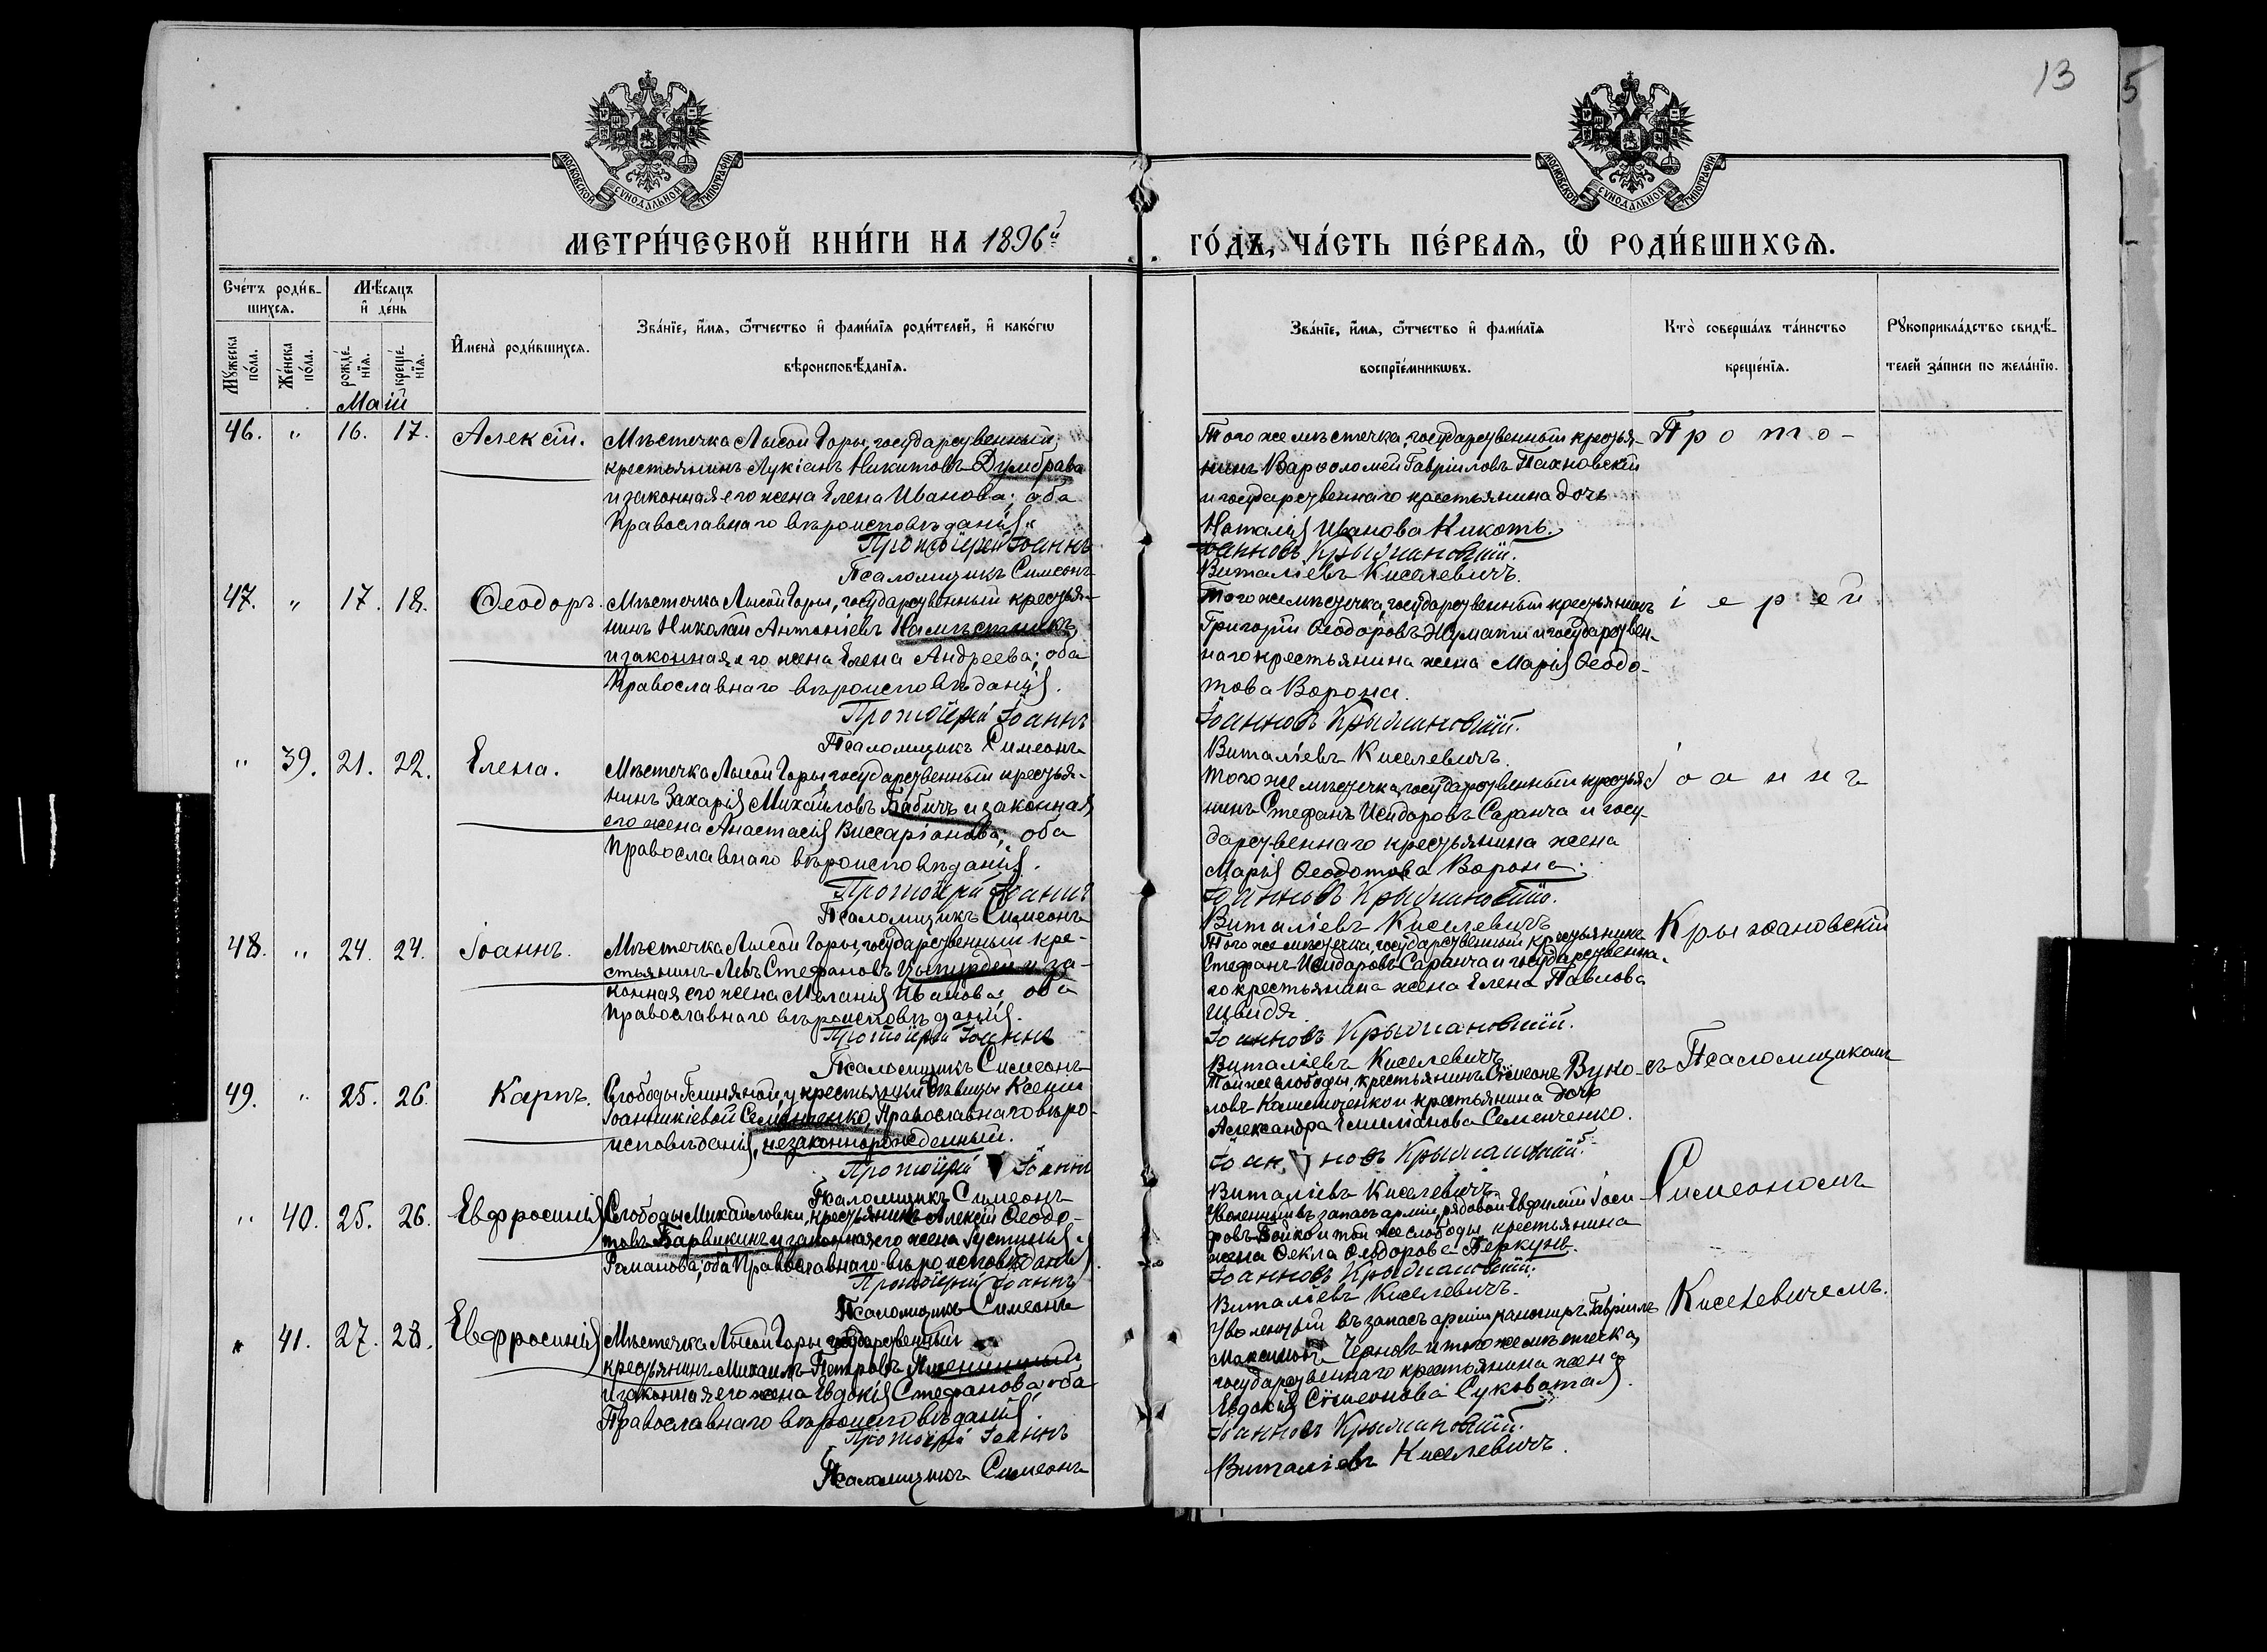 13
5
МОСКОВСКОЙ СѴНОДАЛЬНОЙ ТИПОГРАФІИ
МОСКОВСКОЙ СѴНОДАЛЬНОЙ ТИПОГРАФІИ
МЕТРИ́ЧЕСКОЙ КНИ́ГИ НА 1896й
ГО́ДЪ, ЧА́СТЬ ПЕ́РВАѦ, Ѿ РОДИ́ВШИХСѦ.
Сче́тъ роди́в-
шихсѧ.
Мꙋ́жеска по́ла.
Же́нска по́ла.
Мѣ́сѧцъ
и҆ де́нь
рожде́-
нїѧ.
креще́-
нїѧ.
Маій
И҆мена̀ роди́вшихсѧ.
Зва́нїе, и҆́мѧ, ѻ҆́тчество и҆ фами́лїѧ роди́телей, и҆ како́гѡ
вѣроисповѣ́данїѧ.
Зва́нїе, и҆́мѧ, ѻ҆́тчество и҆ фами́лїѧ
воспрїе́мникѡвъ.
Кто̀ соверша́лъ та́инство
креще́нїѧ.
Рꙋкоприкла́дство свидѣ́-
телей за́писи по жела́нїю.
46. " 16. 17. Алексій.
Мѣстечка Лысой Горы, государственный
крестьянинъ Лукіанъ Никитовъ Думбрава
и законная его жена Елена Иванова; оба
Православнаго вѣроисповѣданія.
Протоіерей Іоаннъ
Псаломщикъ Симеонъ
Того же мѣстечка, государственный крестья-
нинъ Варѳоломей Гавріиловъ Пахновскій
и государственнаго крестьянина дочь
Наталія Иванова Кикоть.
Іоанновъ Крыжановскій.
Виталіевъ Киселевичъ.
Прото-
47. " 17. 18. Ѳеодоръ.
Мѣстечка Лысой Горы, государственный крестья-
нинъ Николай Антоніевъ Намѣстникъ
и законная его жена Елена Андреева; оба
Православнаго вѣроисповѣданія.
Протоіерей Іоаннъ
Псаломщикъ Симеонъ
Того же мѣстечка, государственный крестьянинъ
Григорій Ѳеодоровъ и государствен-
наго крестьянина жена Марія Ѳеодо-
това Ворона.
Іоанновъ Крыжановскій.
Виталіевъ Киселевичъ.
іерей
" 39. 21. 22. Елена.
Мѣстечка Лысой Горы, государственный крестья-
нинъ Захарія Михайловъ Бабичъ и законная
его жена Анастасія Виссаріонова; оба
Православнаго вѣроисповѣданія.
Протоіерей Іоаннъ
Псаломщикъ Симеонъ
Того же мѣстечка, государственный крестья-
нинъ Стефанъ Исидоровъ Саранча и госу-
дарственнаго крестьянина жена
Марія Ѳеодотова Ворона.
Іоанновъ Крыжановскій.
Виталіевъ Киселевичъ
Іоаннъ
48. " 24. 24. Іоаннъ.
Мѣстечка Лысой Горы, государственный кре-
стьянинъ Левъ Стефановъ и за-
конная его жена Меланія Иванова; оба
Православнаго вѣроисповѣданія.
Протоіерей Іоаннъ
Псаломщикъ Симеонъ
Того же мѣстечка, государственный крестьянинъ
Стефанъ Исидоровъ Саранча и государственна-
го крестьянина жена Елена Павлова
Швидя.
Іоанновъ Крыжановскій.
Виталіевъ Киселевичъ
Крыжановскій
49. " 25. 26. Карпъ.
Слободы Глиняной, у крестьянки дѣвицы Ксеніи
Іоанникіевой Семенченко, Православнаго вѣро-
исповѣданія, незаконнорожденный.
Протоіерей Іоаннъ
Псаломщикъ Симеонъ
Той же слободы, крестьянинъ Сѵмеонъ Вуко-
ловъ и крестьянина дочь
Александра Емиліанова Семенченко.
Іоанновъ Крыжановскій.
Виталіевъ Киселевичъ
съ Псаломщикомъ
" 40. 25. 26. Евфросинія
Слободы Михайловки, крестьянинъ Алексій Ѳеодо-
товъ и законная его жена Іустинія
Романова; оба Православнаго вѣроисповѣданія.
Протоіерей Іоаннъ
Псаломщикъ Симеонъ
Уволенный въ запасъ арміи, рядовой Евфимій
Бойко и той же слободы, крестьянина
жена Ѳекла Ѳеодорова Перкунъ.
Іоанновъ Крыжановскій.
Виталіевъ Киселевичъ.
Симеономъ
" 41. 27. 28. Евфросинія
Мѣстечка Лысой Горы государственный
крестьянинъ Михаилъ Петровъ Пшеничный
и законная его жена Евдокія Стефанова; оба
Православнаго вѣроисповѣданія.
Протоіерей Іоаннъ
Псаломщикъ Симеонъ
Уволенный въ запасъ арміи канониръ Гавріилъ
Максимовъ Черновъ и того же мѣстечка,
государственнаго крестьянина жена
Евдокія Сѵмеонова Суковатая.
Іоанновъ Крыжановскій.
Виталіевъ Киселевичъ.
Киселевичемъ.